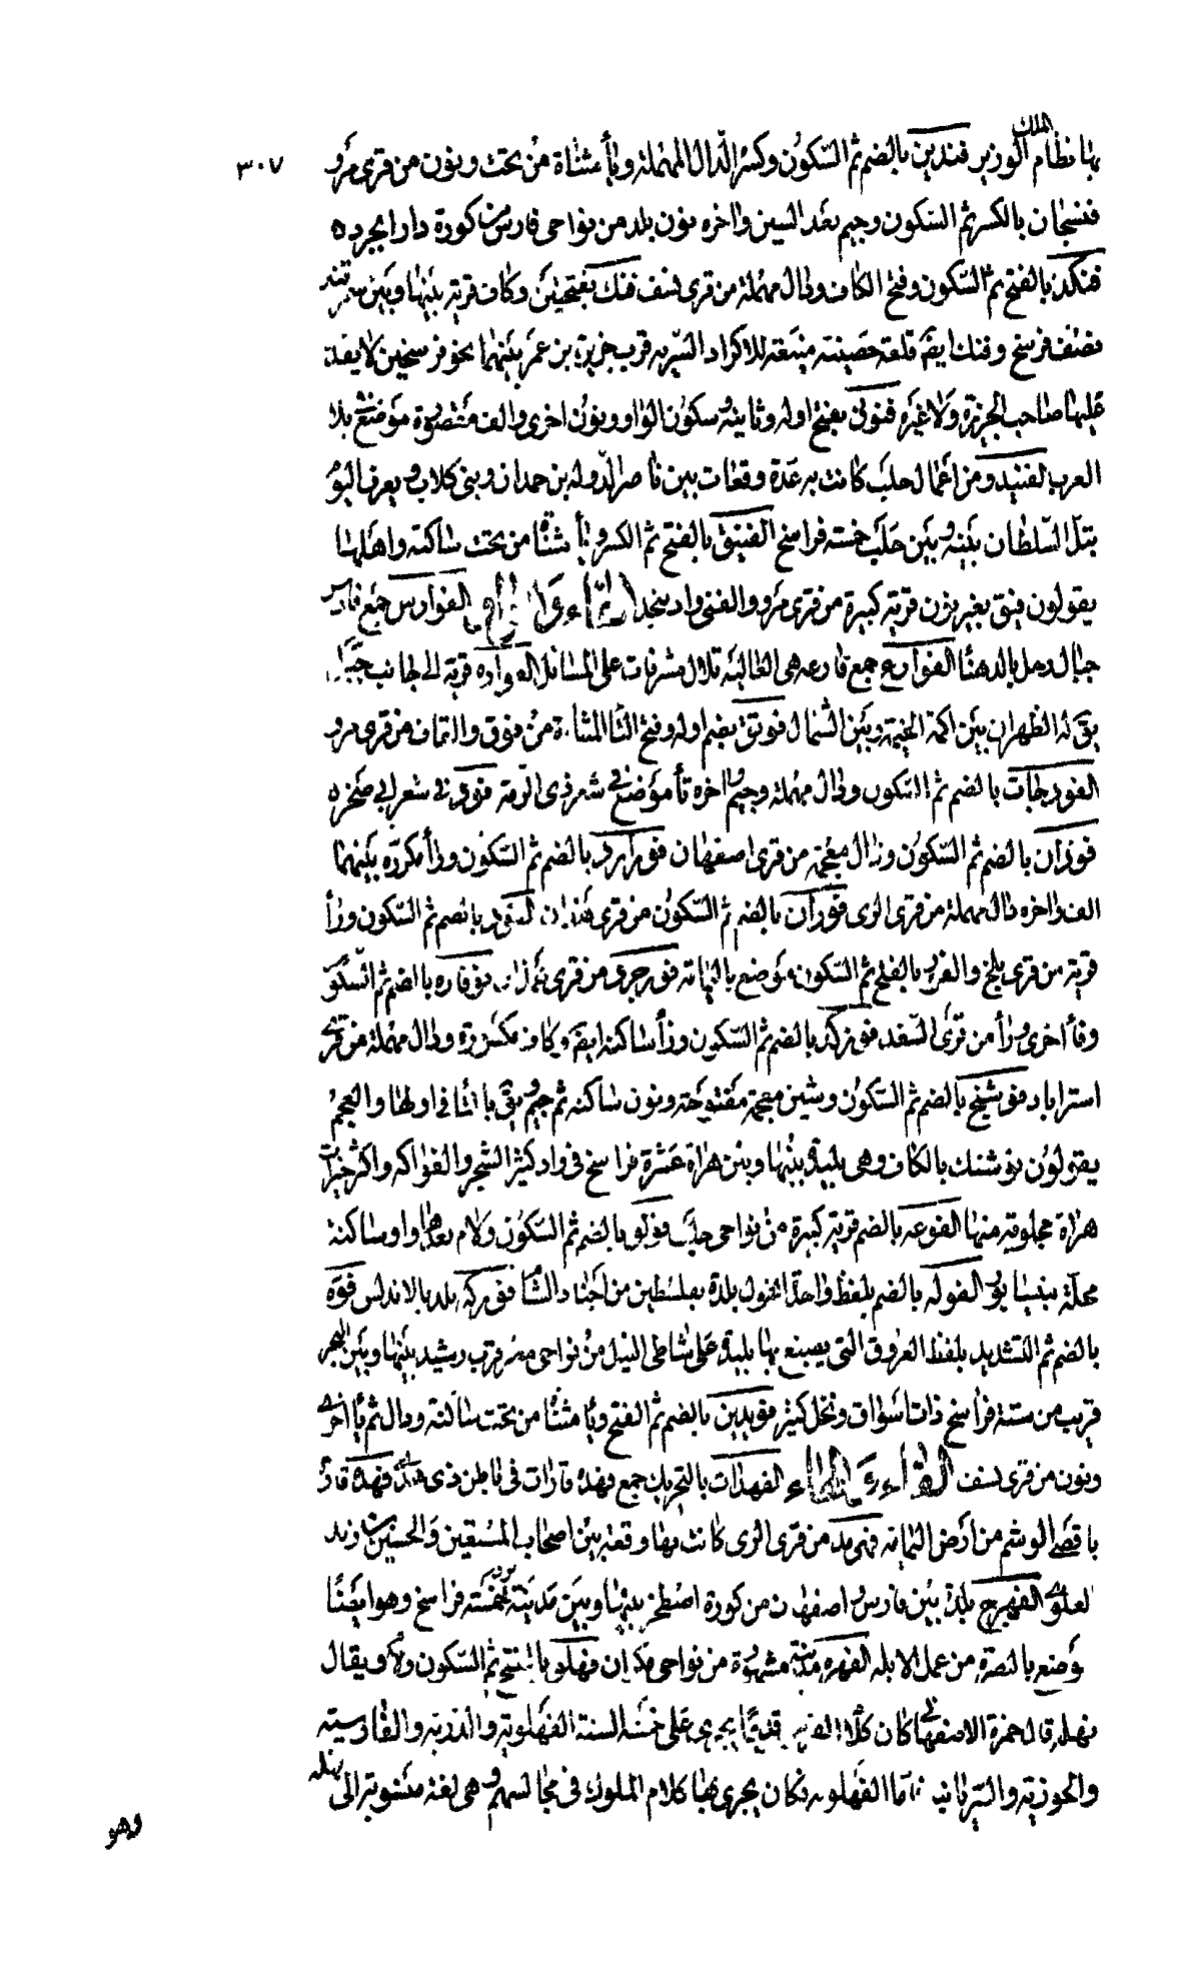 ٣٠٧
بها نظام الملك الوزير فندين بالضم ثم السكون وكسر الدال المهملة ويأ مثناة من تحت ونون من قرى مرو
فنسجان بالكسر ثم السكون وجيم بعد السين واخره نون بلد من نواحى فارس من كورة دارابجرد
فنكد بالفتح ثم السكون وفتح الكاف ودال مهملة من قرى نسف فنك بفتحتين وكاف قرية بينها وبين سمرقند
نصف فرسخ وفنك ايضا قلعة حصينة منيعة للاكراد البشنوية قرب جزيرة بن عمر بينهما نحو فرسخين لا يقدر
عليها صاحب الجزيرة ولا غيره فنونى بفتح اوله وثانيه وسكون الواو ونون اخرى والف مقصورة موضع ببلاد
العرب الفنيدق من اعمال حلب كانت به عدة وقعات بين ناصر الدولة بن حمدان وبنى كلاب ويعرف اليوم
بتل السلطان بينه وبين حلب خمسة فراسخ الفنيق بالفتح ثم الكسر ويأ مثناة من تحت ساكنة واهلها
يقولون فنيق بغير نون قرية كبيرة من قرى مرو والفنى واد بنجد الفأ والواو الفوارس جمع فارس
جبال رمل بالدهنا الفوارع جمع فارعه هى العالية تلال مشرفات على المسائل الفوارة قرية الى جانب جبل
يق له الظهران بين اكمة الخيمة وبين الشمال فوتق بضم اوله وفتح التا المثناة من فوق والقاف من قرى مرو
الفودجات بالضم ثم السكون ودال مهملة وجيم واخره تأ موضع فى شعر ذى الرمة فودى فى شعر ابى صخره
فوذان بالضم ثم السكون وذال معجمة من قرى اصفهان فورارد بالضم ثم السكون ورأ مكررة بينهما
الف واخره دال مهملة من قرى الرى فوران بالضم ثم السكون من قرى همذان الفور بالضم ثم السكون ورأ
قرية من قرى بلخ والفور بالفتح ثم السكون موضع باليمامة فورجرد من قرى همذان فورفاره بالضم ثم السكون
وفأ اخرى ورأ من قرى السغد فوزكرد بالضم ثم السكون وزأ ساكنه ايضا وكاف مكسورة ودال مهملة من قرى
استراباد فوشنج بالضم ثم السكون وشين معجمة مفتوحة ونون ساكنة ثم جيم يق بالبا فى اولها والعجم
يقولون بوشنك بالكاف وهى بليدة بينها وبين هراة عشرة فراسخ فى واد كثير الشجر والفواكه واكثر خيرات
هراة مجلوبة منها الفوعه بالضم قرية كبيرة من نواحى حلب فولو بالضم ثم السكون ولام بعدها واو ساكنة
محلة بنيسابور الفوله بالضم بلفظ واحدة الفول بلدة بفلسطين من اجناد الشام فونكه بلد بالاندلس فوة
بالضم ثم التشديد بلفظ العروق التى يصبغ بها بليدة على شاطى النيل من نواحى مصر قرب رشيد بينها وبين البحر
قريب من ستة فراسخ ذات اسواق ونخل كثير فويدين بالضم ثم الفتح ويأ مثنأ من تحت ساكنة ودال ثم يأ اخرى
ونون من قرى نسف الفأ والهأ الفهدات بالتحريك جمع فهدة قارات فى باطن ذى فهدة قارة
باقصى الوشم من ارض اليمامة فهرمد من قرى الرى كانت بها وقعة بين اصحاب المستعين والحسين بن زيد
العلوى الفهرج بلدة بين فارس واصفهان من كورة اصطخر بينها وبين مدينة يزد خمسة فراسخ وهو ايضا
موضع بالبصرة من عمل الابله الفهره مدينة مشهورة من نواحى مكران فهلو بالفتح ثم السكون ولام ويقال
فهله قال حمزة الاصفهانى كان كلام الفرس قديما يجرى على خمسة السنة الفهلوية والدرية والفارسيه
والخوزية والسريانية فاما الفهلويه فكان يجرى بها كلام الملوك فى مجالسهم وهى لغة منسوبة الى فهله
وهو